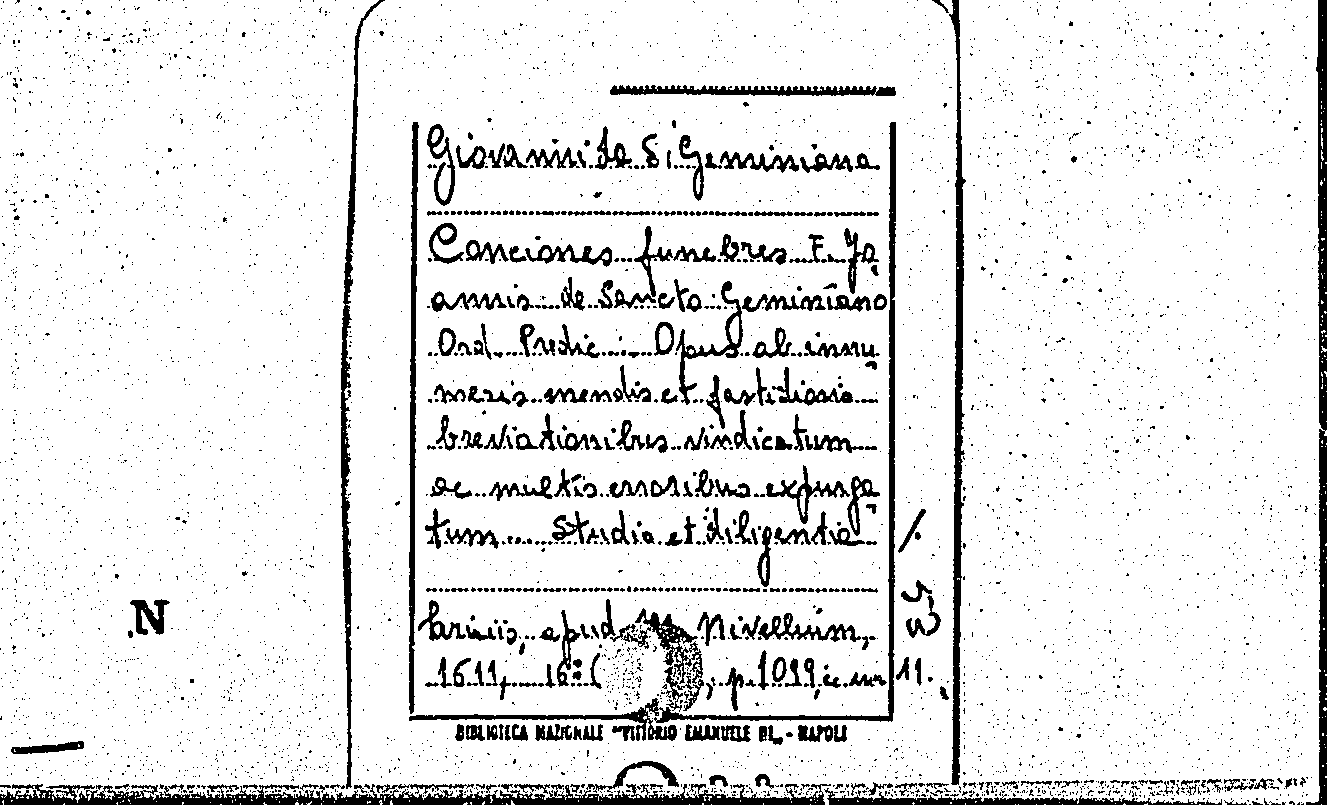 Giovanni da S. Geminiano
Conciones funebres F. Jo
annis de Sancto Geminiano
Ord. Predic... Opus ab innu
meris mendis et fastidiosis
breviationibus vindicatum
ac multis erroribus expurga
tum... Studio et diligentia
Parisiis, apud Nivellium,
1611, 16° ( , p. 1099, c. 11.
BIBLIOTECA NAZIONALE "VITTORIO EMANUELE III" - NAPOLI
N